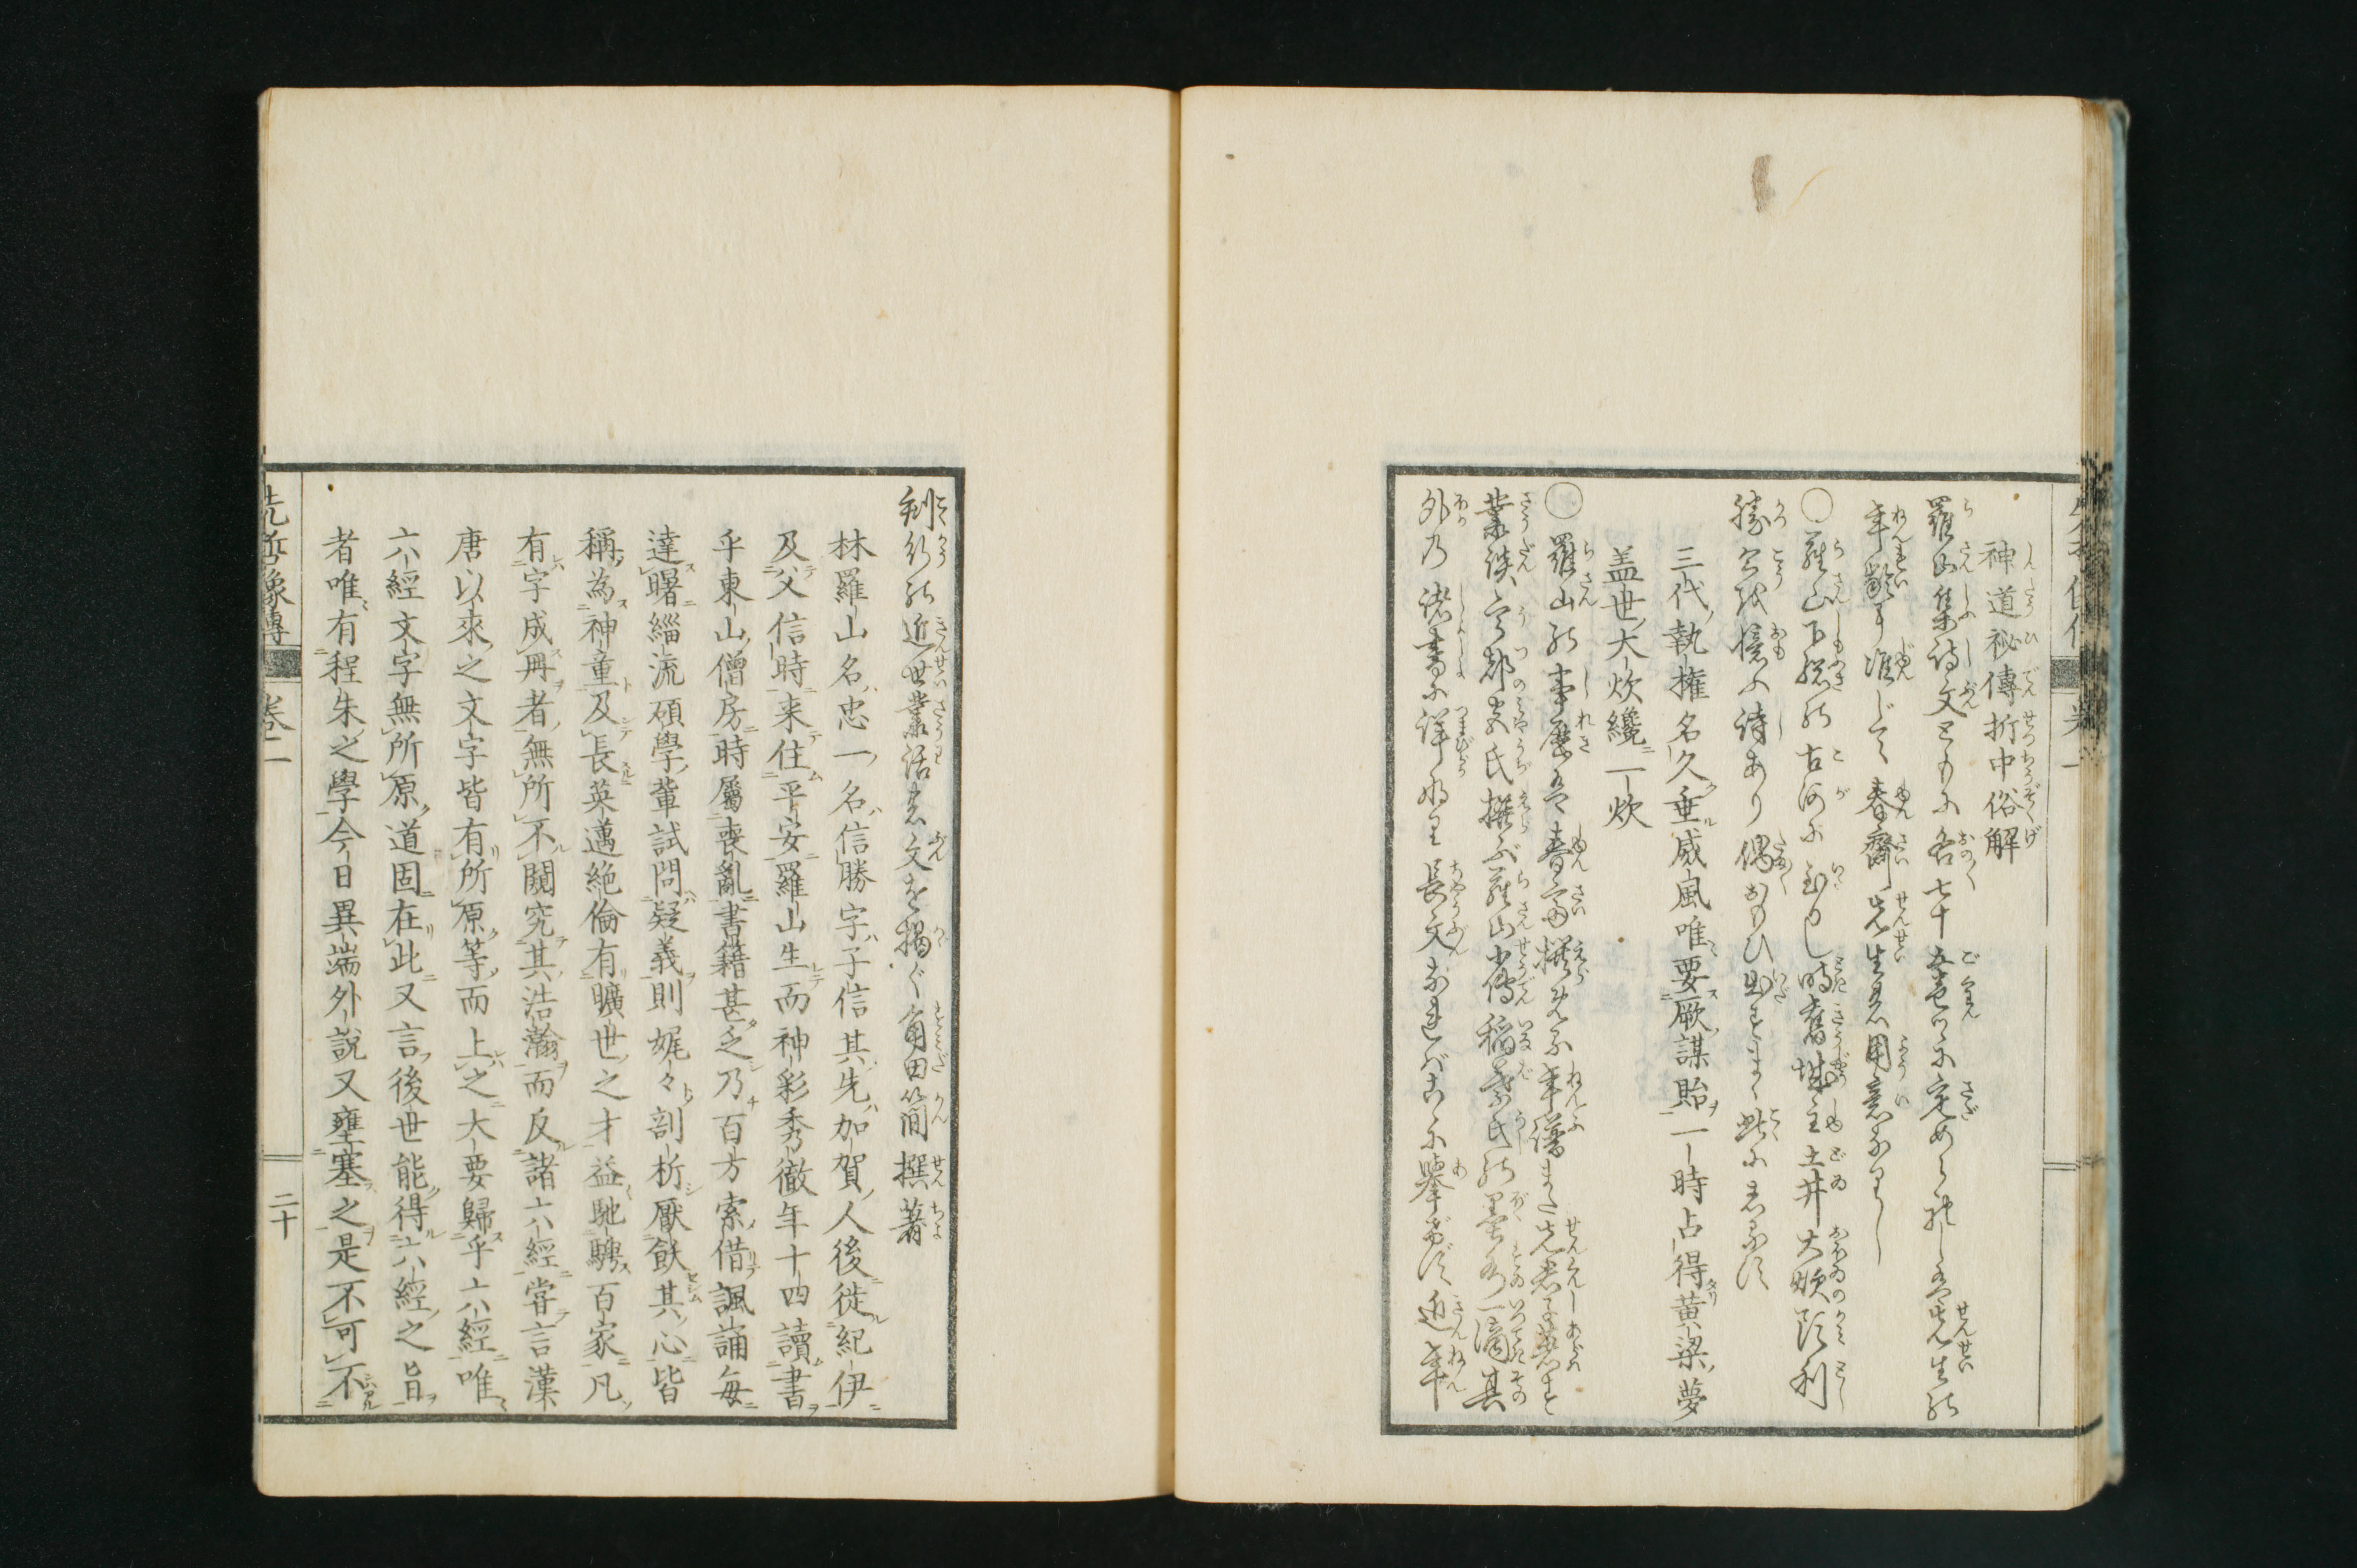 神道秘傳折中俗解
羅山集詩文ともに各七十五巻に定めらるゝは先生の
年齢に准じて春齋先生の用意なりし
○羅山下総の古河に至りし時舊城主土井大炊頭利
勝公を憶ふ詩あり偶おもひ出すまゝ此にしるす
三代執権名久垂威風唯要厥謀貽一時占得黄梁夢
盖世大炊纔一炊
○羅山の事歴は春齋撰する年譜また先哲叢
談宇都宮氏撰ぶ羅山小傳稲葉氏の墨水一滴其
外乃諸書に詳なり長文なればこゝに擧ず近年
刻行の近世叢語の文を掲ぐ角田簡撰著
林羅山名忠一名信勝字子信其先加賀人後徙紀伊
及父信時来住平安羅山生而神彩秀徹年十四讀書
乎東山僧房時屬喪亂書籍甚乏乃百方索借諷誦毎
達曙緇流碩學輩試問疑義則娓々剖析厭飫其心皆
稱為神童及長英邁絶倫有曠世之才益馳騁百家凡
有字成冊者無所不閲究其浩瀚而反諸六經甞言漢
唐以來之文字皆有所原等而上之大要歸乎六經唯
六經文字無所原道固在此又言後世能得六經之旨
者唯有程朱之學今日異端外說又壅塞之是不可不
先哲像傳　巻二　二十